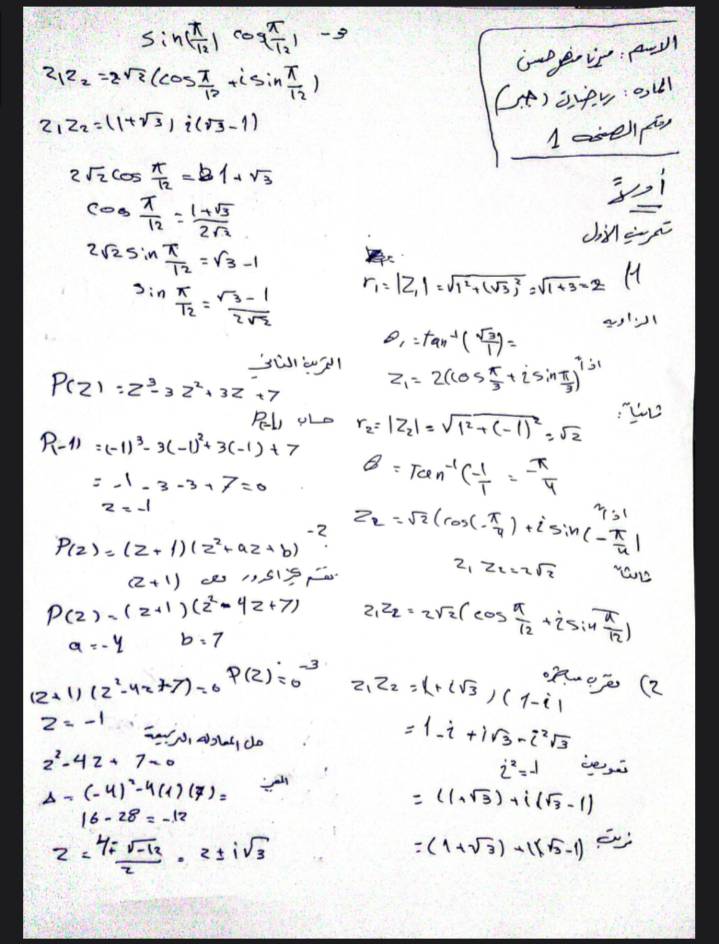 الاسم: ميرنا حسن
الماده: رياضيات (جبر)
رقم الصفحه 1
أولاً
تمرين الأول
(1 r₁ = |Z₁| = √1²+(√3)² = √1+3 = 2
الزاويه
θ₁ = tan⁻¹(√3/1) =
اذاً Z₁ = 2(cos π/3 + i sin π/3)
ثانياً: r₂ = |Z₂| = √1²+(-1)² = √2
θ = Tan⁻¹(-1/1 = -π/4
اذاً Z₂ = √2(cos(-π/4) + i sin(-π/4)
ثالثاً Z₁ Z₂ = 2√2
Z₁Z₂ = 2√2(cos π/12 + i sin π/12)
(2 نضرب مباشره Z₁Z₂ = (1+i√3)(1-i)
= 1-i + i√3 - i²√3
تعويض i² = -1
= (1+√3) + i(√3-1)
نرتب = (1+√3) + i(√3-1)
3- cos(π/12) sin(π/12)
Z₁Z₂ = 2√2(cos π/12 + i sin π/12)
Z₁Z₂ = (1+√3) i(√3-1)
2√2 cos π/12 = 1+√3
cos π/12 = 1+√3/2√2
2√2 sin π/12 = √3-1
sin π/12 = √3-1/2√2
التمرين الثاني
P(Z) = Z³-3Z²+3Z+7
حساب P(-1)
P(-1) = (-1)³-3(-1)²+3(-1)+7
= -1-3-3+7=0
Z=-1
2- P(Z) = (Z+1)(Z²+aZ+b)
(Z+1)
P(Z) = (Z+1)(Z²-4Z+7)
a=-4 b=7
3- P(Z)=0
(Z+1)(Z²-4Z+7)=0
Z=-1
حل المعادله التربيعية
Z²-4Z+7=0
Δ = (-4)²-4(1)(7)=
16-28=-12
Z = 4±√-12/2 = 2±i√3